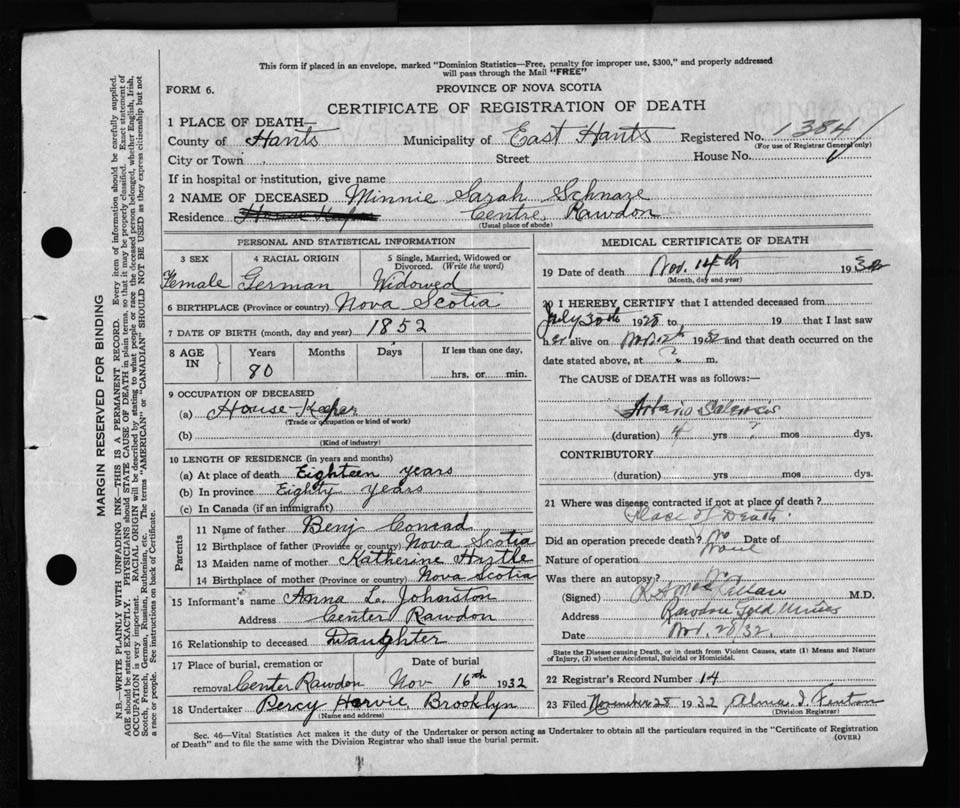 This form if placed in an envelope, marked "Dominion Statistics—Free, penalty for improper use, $300," and properly addressed
will pass through the Mail "FREE"
FORM 6.
PROVINCE OF NOVA SCOTIA
CERTIFICATE OF REGISTRATION OF DEATH
1 PLACE OF DEATH—
County of Hants Municipality of East Hants Registered No. 1384
(For use of Registrar General only)
City or Town Street House No.
If in hospital or institution, give name
2 NAME OF DECEASED Minnie Sarah Schnare
Residence Centre Rawdon
(Usual place of abode)
PERSONAL AND STATISTICAL INFORMATION
3 SEX 4 RACIAL ORIGIN 5 Single, Married, Widowed or
Divorced. (Write the word)
Female German Widowed
6 BIRTHPLACE (Province or country) Nova Scotia
7 DATE OF BIRTH (month, day and year) 1852
8 AGE IN Years Months Days If less than one day,
80 hrs. or min.
9 OCCUPATION OF DECEASED
(a) House-Keeper
(Trade or occupation or kind of work)
(b)
(Kind of industry)
10 LENGTH OF RESIDENCE (in years and months)
(a) At place of death Eighteen years
(b) In province Eighty years
(c) In Canada (if an immigrant)
Parents
11 Name of father Benj Conrad
12 Birthplace of father (Province or country) Nova Scotia
13 Maiden name of mother Katherine
14 Birthplace of mother (Province or country) Nova Scotia
15 Informant's name Anna L. Johnston
Address Center Rawdon
16 Relationship to deceased Daughter
17 Place of burial, cremation or Date of burial
removal Center Rawdon Nov 16th 1932
18 Undertaker Percy Harvie Brooklyn
(Name and address)
MEDICAL CERTIFICATE OF DEATH
19 Date of death Nov. 14th 1932
(Month, day and year)
20 I HEREBY CERTIFY that I attended deceased from
July 30th 1928 to 19 that I last saw
her alive on 1932 and that death occurred on the
date stated above, at ? m.
The CAUSE OF DEATH was as follows:—
(duration) 4 yrs ? mos dys.
CONTRIBUTORY
(duration) yrs mos dys.
21 Where was disease contracted if not at place of death?
Place of Death.
Did an operation precede death? No Date of
None
Nature of operation
Was there an autopsy? No
(Signed) M.D.
Address Rawdon Gold Mines
Date Nov. 28/32.
State the Disease causing Death, or in death from Violent Causes, state (1) Means and Nature
of Injury, (2) whether Accidental, Suicidal or Homicidal.
22 Registrar's Record Number 14
23 Filed November 28 1932 Alma I. Fenton
(Division Registrar)
Sec. 46—Vital Statistics Act makes it the duty of the Undertaker or person acting as Undertaker to obtain all the particulars required in the "Certificate of Registration
of Death" and to file the same with the Division Registrar who shall issue the burial permit.
(OVER)
MARGIN RESERVED FOR BINDING
N.B.—WRITE PLAINLY WITH UNFADING INK—THIS IS A PERMANENT RECORD. Every item of information should be carefully supplied.
AGE should be stated EXACTLY. PHYSICIANS should STATE CAUSE OF DEATH in plain terms, so that it may be properly classified. Exact statement of
OCCUPATION is very important. RACIAL ORIGIN will be described by stating to what people or race the deceased person belonged, whether English, Irish,
Scotch, French, German, Russian, Ruthenian, etc. The terms "AMERICAN" or "CANADIAN" SHOULD NOT BE USED as they express citizenship but not
a race or people. See instructions on back of Certificate.